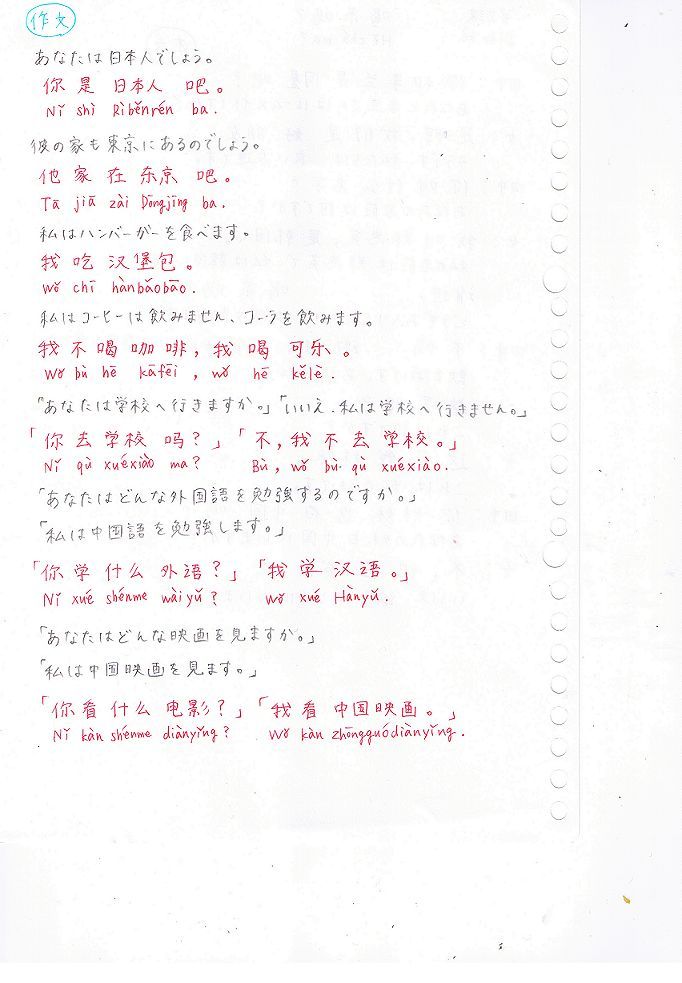 作文
あなたは日本人でしょう。
你是日本人吧。
Nǐ shì Rìběnrén ba.
彼の家も東京にあるのでしょう。
他家在东京吧。
Tā jiā zài Dōngjīng ba.
私はハンバーガーを食べます。
我吃汉堡包。
wǒ chī hànbǎobāo.
私はコーヒーは飲みません、コーラを飲みます。
我不喝咖啡,我喝可乐。
wǒ bù hē kāfēi , wǒ hē kělè.
「あなたは学校へ行きますか。」「いいえ、私は学校へ行きません。」
「你去学校吗?」「不,我不去学校。」
Nǐ qù xuéxiào ma? Bù, wǒ bù qù xuéxiào.
「あなたはどんな外国語を勉強するのですか。」
「私は中国語を勉強します。」
「你学什么外语?」「我学汉语。」
Nǐ xué shénme wàiyǔ? wǒ xué Hànyǔ.
「あなたはどんな映画を見ますか。」
「私は中国映画を見ます。」
「你看什么电影?」「我看中国映画。」
Nǐ kàn shénme diànyǐng? Wǒ kàn zhōngguódiànyǐng.